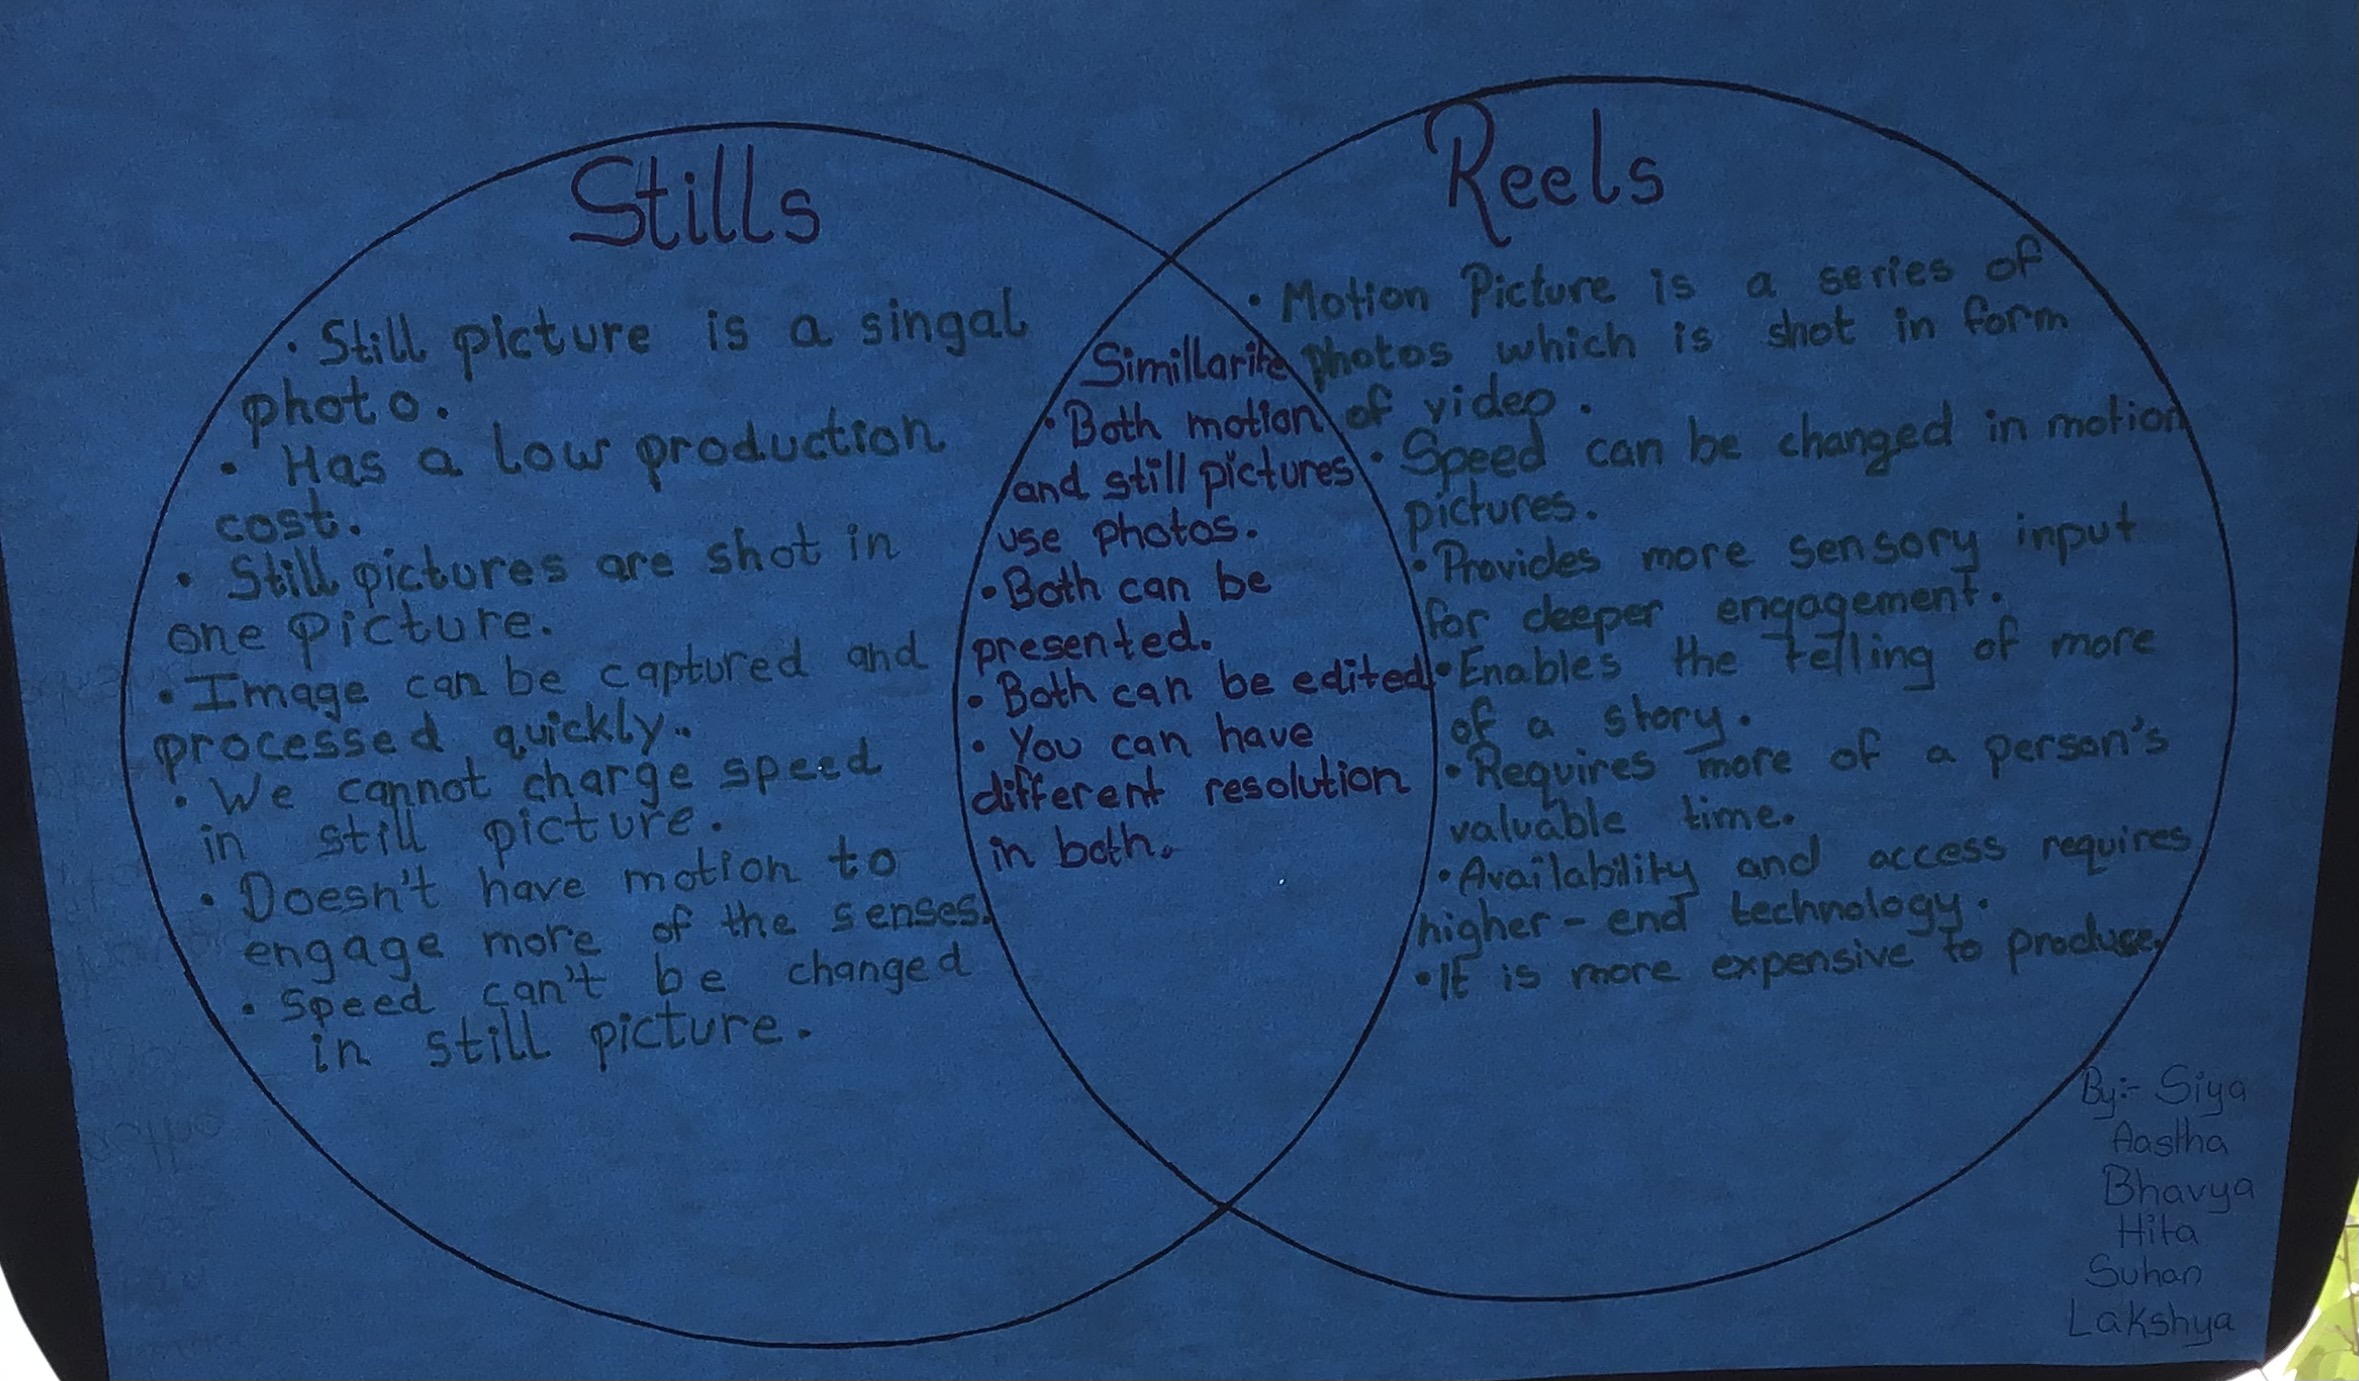 Stills
· Still picture is a singal
photo.
· Has a low production
cost.
· Still pictures are shot in
one picture.
· Image can be captured and
processed quickly.
· We cannot charge speed
in still picture.
· Doesn't have motion to
engage more of the senses.
· Speed can't be changed
in still picture.
Simillarite
· Both motion
and still pictures
use photos.
· Both can be
presented.
· Both can be edited
· You can have
different resolution
in both.
Reels
· Motion Picture is a series of
photos which is shot in form
of video.
· Speed can be changed in motion
pictures.
· Provides more sensory input
for deeper engagement.
· Enables the telling of more
of a story.
· Requires more of a person's
valuable time.
· Availability and access requires
higher-end technology.
· It is more expensive to produce.
By:- Siya
Aastha
Bhavya
Hita
Suhan
Lakshya